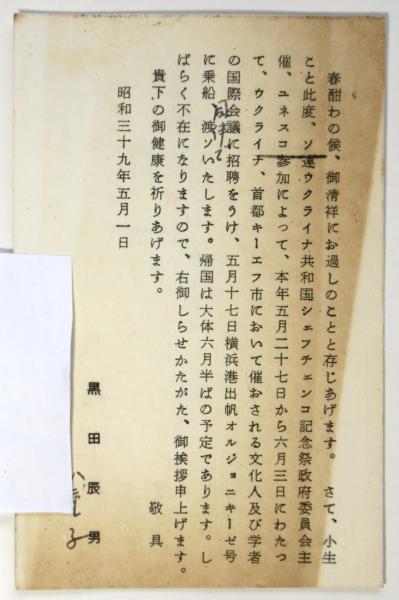 春酣わの候、御清祥にお過しのことと存じあげます。　さて、小生
こと此度、ソ連ウクライナ共和国シェフチェンコ記念祭政府委員会主
催、ユネスコ参加によって、本年五月二十七日から六月三日にわたっ
て、ウクライナ、首都キーエフ市において催おされる文化人及び学者
の国際会議に招聘をうけ、五月十七日横浜港出帆オルジョニキーゼ号
同伴して
に乗船　渡ソいたします。帰国は大体六月半ばの予定であります。し
ばらく不在になりますので、右御しらせかたがた、御挨拶申上げます。
貴下の御健康を祈りあげます。
敬具
昭和三十九年五月一日
黒田辰男